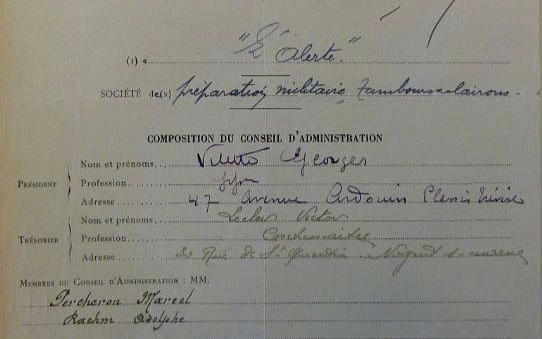 (1) « "L'Alerte"
SOCIÉTÉ de (2) préparation militaire, tambours clairons.
COMPOSITION DU CONSEIL D'ADMINISTRATION
PRÉSIDENT
Nom et prénoms Georges
Profession
Adresse 47 avenue Ardouin Plessis Trévise
TRÉSORIER
Nom et prénoms Leclerc Victor
Profession
Adresse Rue de St Quentin Nogent s-marne
MEMBRES DU CONSEIL D'ADMINISTRATION : MM.
Percheron Marcel
Adolphe